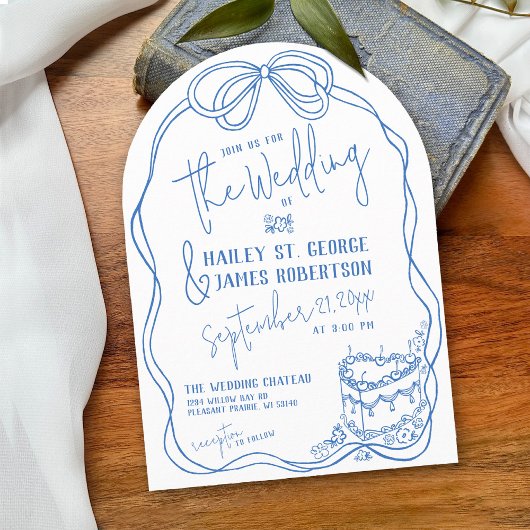 JOIN US FOR
the Wedding
OF
HAILEY ST. GEORGE
& JAMES ROBERTSON
september 21, 20xx
AT 3:00 PM
THE WEDDING CHATEAU
1284 WILLOW BAY RD
PLEASANT PRAIRIE, WI 53140
reception
TO FOLLOW